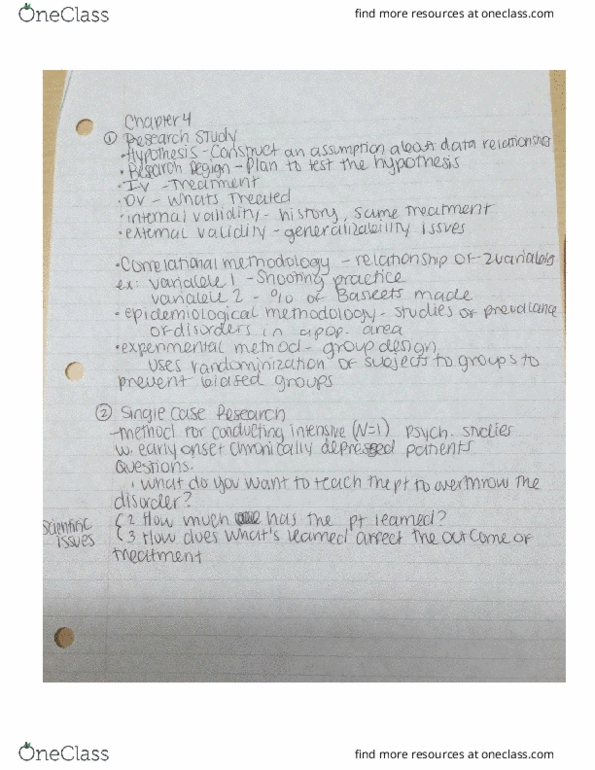 OneClass
find more resources at oneclass.com
Chapter 4
① Research Study
• Hypothesis - Construct an assumption about data relationships
• Research Design - Plan to test the hypothesis
• IV - Treatment
• DV - Whats Treated
• internal validity - history, same treatment
• external validity - generalizability issues
• Correlational methodology - relationship of 2 variables
ex: variable 1 - Shooting practice
variable 2 - % of Baskets made
• epidemiological methodology - studies of prevalance
of disorders in a pop. area
• experimental method - group design
uses randominization of subjects to groups to
prevent biased groups
② Single Case Research
- method for conducting intensive (N=1) psych. studies
w. early onset chronically depressed patients
Questions.
1 what do you want to teach the pt to overthrow the
disorder?
scientific issues
2 How much has the pt learned?
3 How does what's learned affect the outcome of
treatment
OneClass
find more resources at oneclass.com